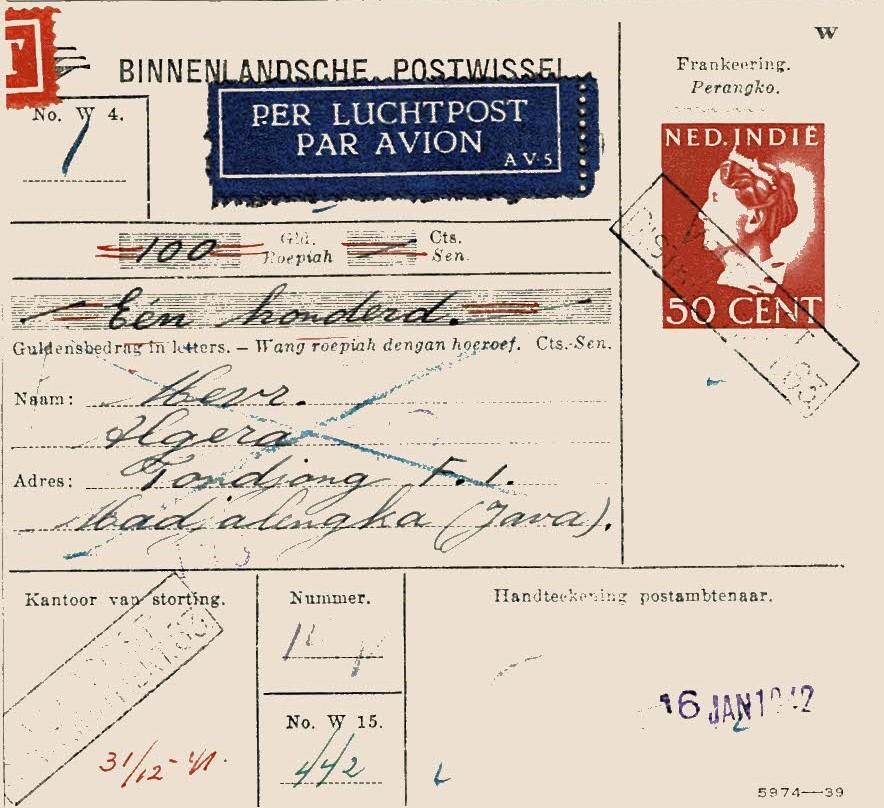 W
BINNENLANDSCHE POSTWISSEL
Frankeering.
Perangko.
No. W 4.
1
PER LUCHTPOST
PAR AVION
A V-5
NED. INDIË
50 CENT
100 Gld. Cts.
Roepiah Sen.
Eén honderd.
Guldensbedrag in letters. — Wang roepiah dengan hoeroef. Cts.-Sen.
Naam: Mevr.
Algera
Adres: Tondjong F. 1.
Madjalengka (Java).
Kantoor van storting.
Nummer.
Handteekening postambtenaar.
16 JAN 1942
No. W 15.
31/12-'41.
442
5974—39